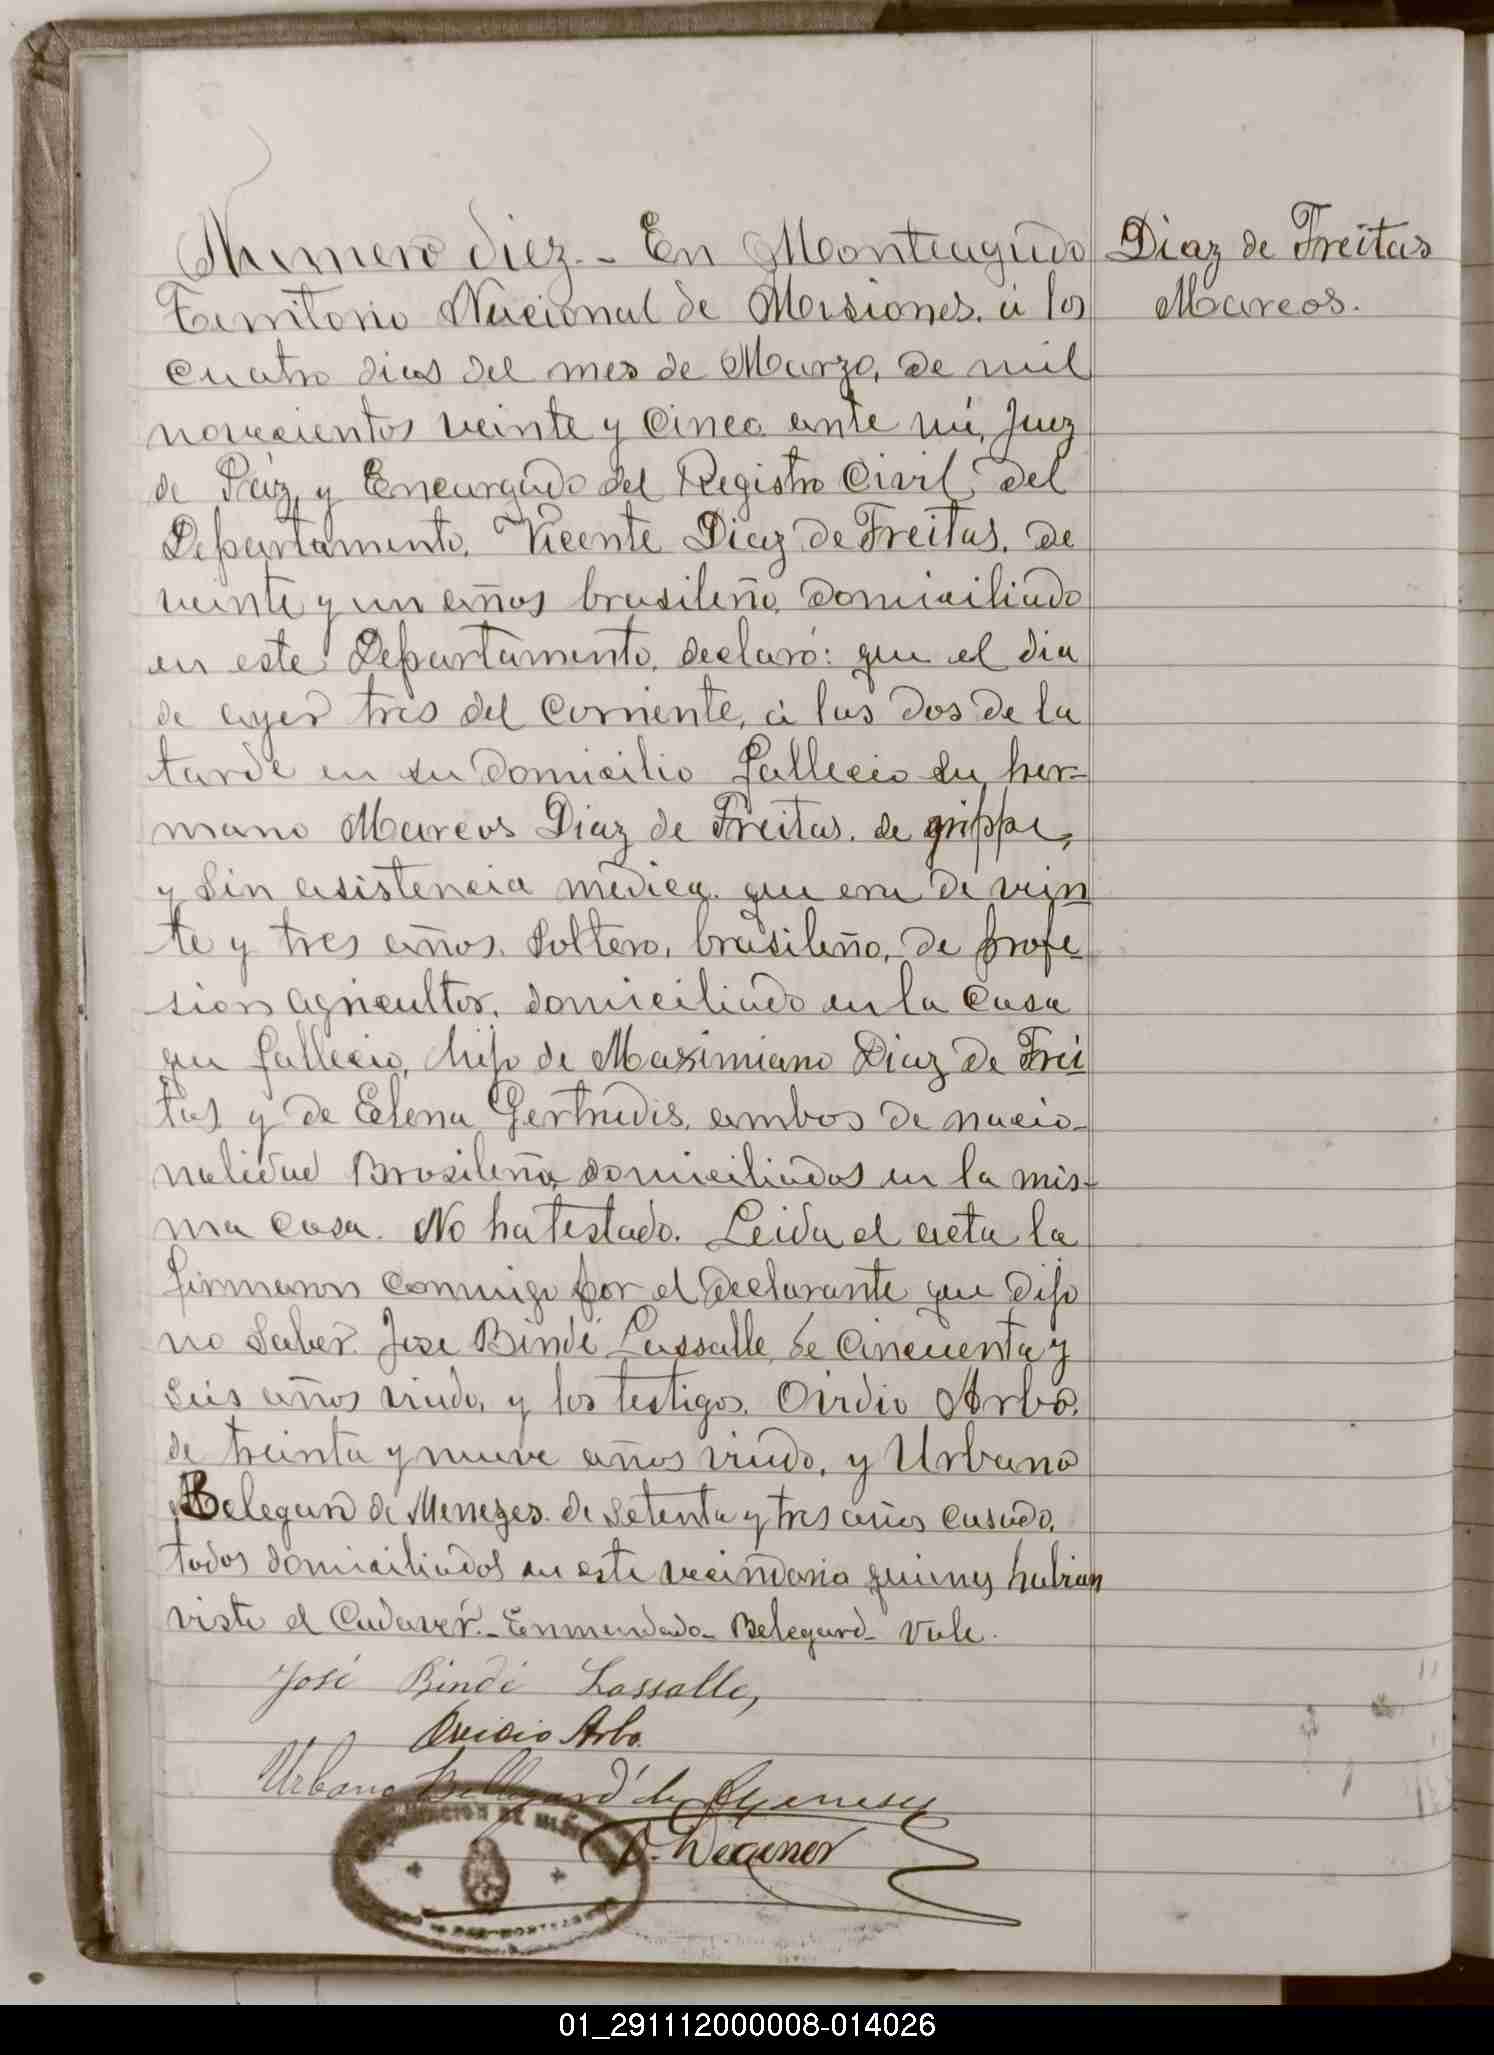 Numero diez.- En Monteagudo
Territorio Nacional de Misiones. á los
cuatro dias del mes de Marzo, de mil
novecientos veinte y cinco ante mi, Juez
de Páz, y Encargado del Registro Civil, del
Departamento, Vicente Diaz de Freitas, de
veinte y un años brasileño, domiciliado
en este Departamento, declaró: que el dia
de ayer tres del corriente, á las dos de la
tarde en su domicilio fallecio su her-
mano Marcos Diaz de Freitas. de grippe,
y sin asistencia medica. que era de vein
te y tres años. soltero, brasileño, de profe
sion agricultor, domiciliado en la casa
que fallecio, hijo de Maximiano Diaz de Frei
tas y de Elena Gertrudis, ambos de nacio-
nalidad Brasileña, domiciliados en la mis-
ma casa. No ha testado. Leida el acta la
firmaron conmigo por el declarante que dijo
no saber. José Bindé Lassalle, de cincuenta y
seis años viudo, y los testigos. Ovidio Arbo,
de treinta y nueve años viudo, y Urbano
Belegard de Menezes. de setenta y tres años casado,
todos domiciliados en este vecindario quienes habian
visto el Cadaver.- Enmendado- Belegard- Vale.
José Bindé Lassalle,
Ovidio Arbo
Urbano Bellegard de
Wegener
Diaz de Freitas
Marcos.
01_291112000008-014026